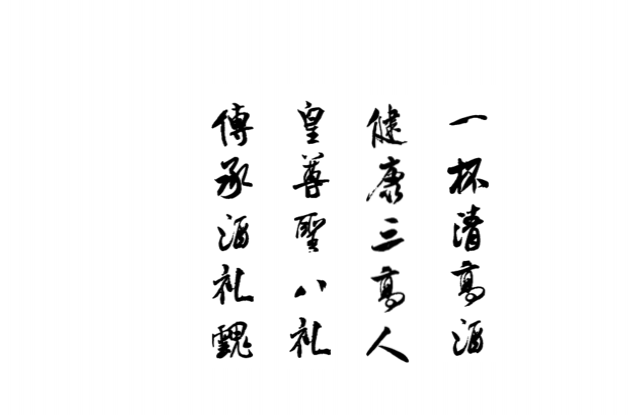 一杯清高酒
健康三高人
皇尊聖八礼
傳承酒礼魂